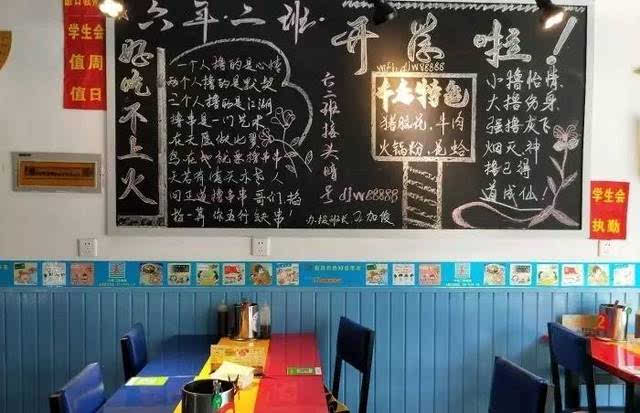 六年二班
开荤啦!
好吃不上火
一个人撸的是心情
两个人撸的是默契
三个人撸的是江湖
撸串是一门艺术
在天愿做比翼鸟
在地就要撸串串
天若有情天亦老
人间正道撸串串 哥们,掐
掐一算 你五行缺串!
六二班接头暗号 djw88888
wifi:djw88888
牛志特色
猪脑花,牛肉
火锅粉,花蛤
小撸怡情
大撸伤身
强撸灰飞
烟灭,神
撸已得
道成仙!
学生会
值周
值日
学生会
执勤
2